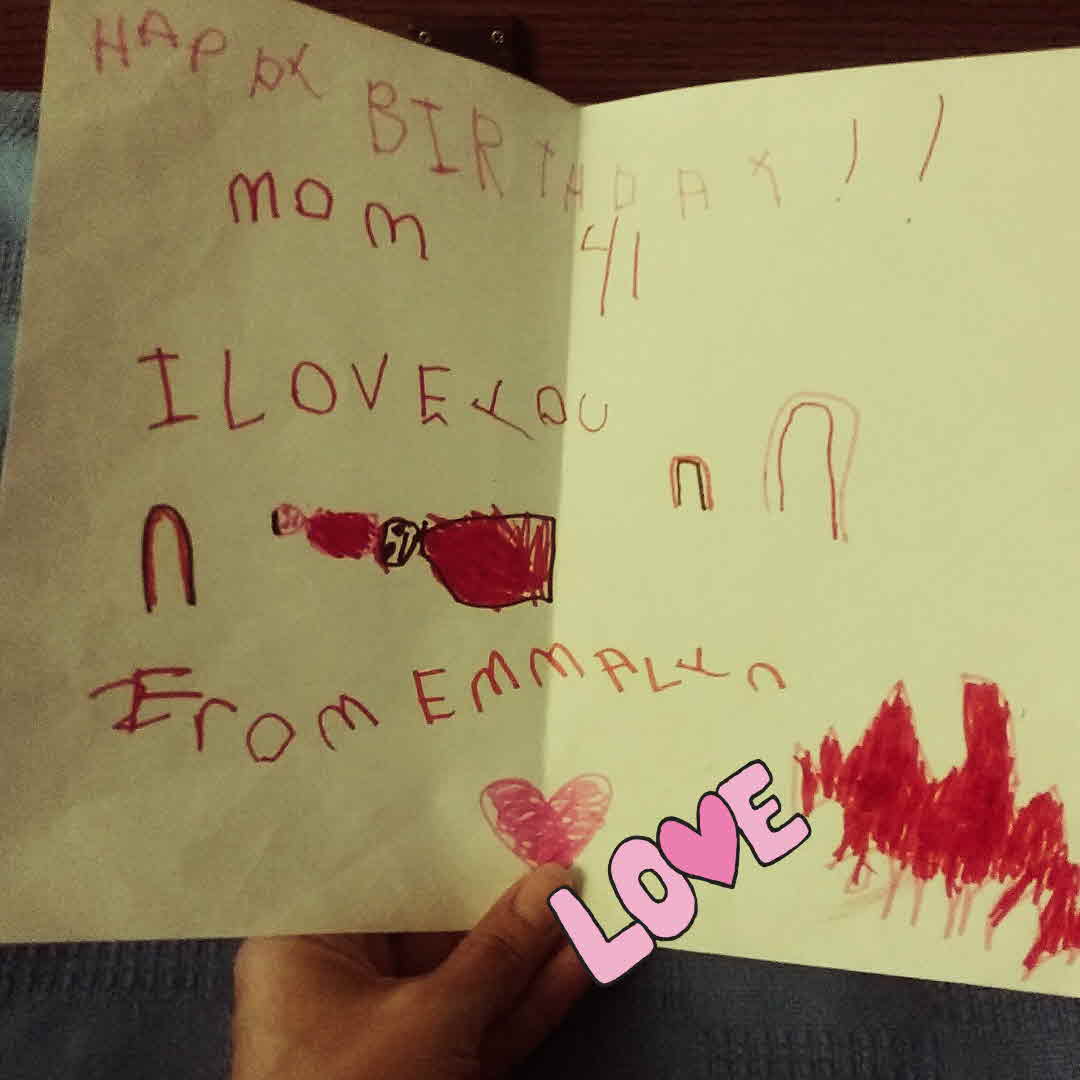 HAPPY BIRTHDAY!!
MOM 41
I LOVE YOU
From EMMALYn
LOVE